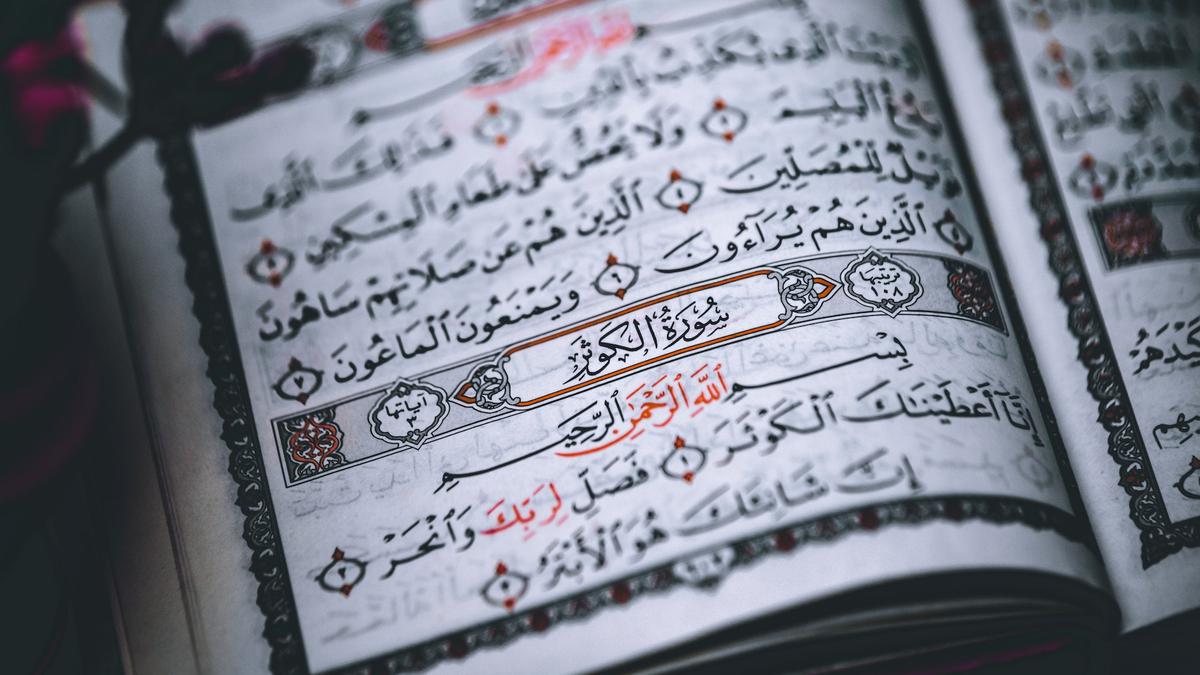 ٱللَّهِ ٱلرَّحْمَٰنِ ٱلرَّحِيمِ
ٱلَّذِى يُكَذِّبُ بِٱلدِّينِ ١ فَذَٰلِكَ ٱلَّذِى
يَدُعُّ ٱلْيَتِيمَ ٢ وَلَا يَحُضُّ عَلَىٰ طَعَامِ ٱلْمِسْكِينِ ٣
فَوَيْلٌ لِّلْمُصَلِّينَ ٤ ٱلَّذِينَ هُمْ عَن صَلَاتِهِمْ سَاهُونَ
٥ ٱلَّذِينَ هُمْ يُرَآءُونَ ٦ وَيَمْنَعُونَ ٱلْمَاعُونَ ٧
ترتيبها ١٠٨ سُورَةُ الكَوْثَرِ آياتها ٣
بِسْمِ ٱللَّهِ ٱلرَّحْمَٰنِ ٱلرَّحِيمِ
إِنَّآ أَعْطَيْنَٰكَ ٱلْكَوْثَرَ ١ فَصَلِّ لِرَبِّكَ وَٱنْحَرْ ٢
إِنَّ شَانِئَكَ هُوَ ٱلْأَبْتَرُ ٣